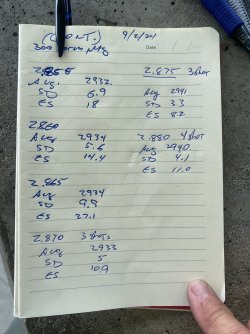 (CONT.) 9/2/24
300 Norma Mag Date / /
2.855
Avg. 2932
SD 6.9
ES 18
2.860
Avg 2934
SD 5.6
ES 14.4
2.865
Avg 2934
SD 9.9
ES 27.1
2.870 3 shots
Avg 2933
SD 5
ES 10.9
2.875 3 shot
Avg 2941
SD 3.3
ES 8.2
2.880 4 shot
Avg 2940
SD 4.1
ES 11.0